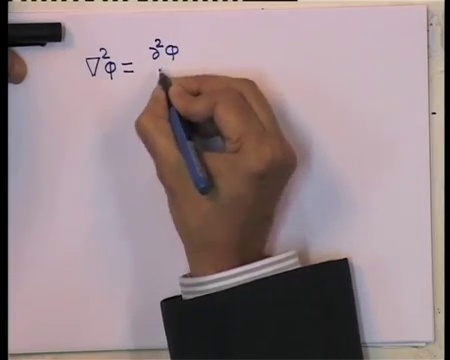 ∇²φ = ∂²φ